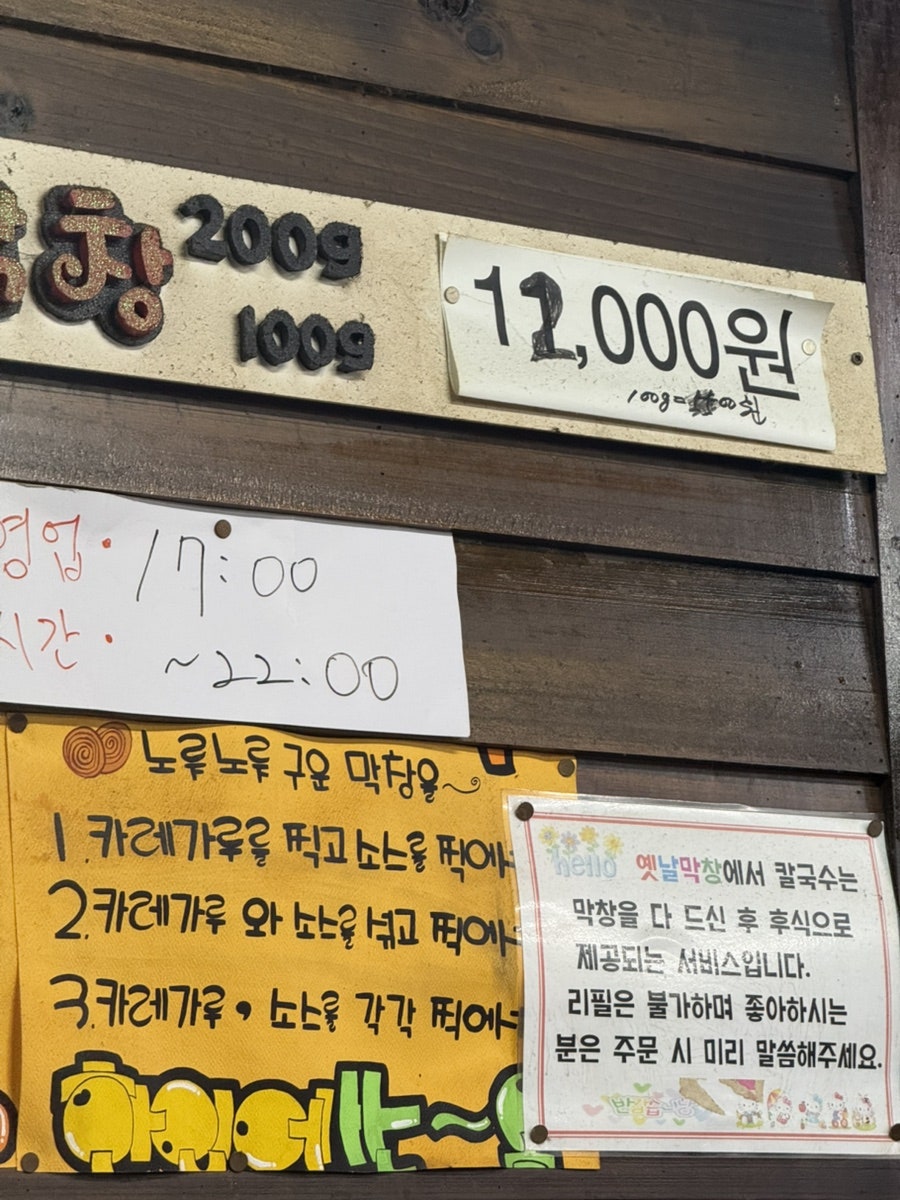 창 200g
100g
12,000원
100g= 00원
영업· 17:00
시간· ~22:00
노릇노릇 구운 막창을~
1. 카레가루를 찍고 소스를 찍어
2. 카레가루 와 소스를 섞고 찍어
3. 카레가루, 소스를 각각 찍어
hello 옛날막창에서 칼국수는
막창을 다 드신 후 후식으로
제공되는 서비스입니다.
리필은 불가하며 좋아하시는
분은 주문 시 미리 말씀해주세요.